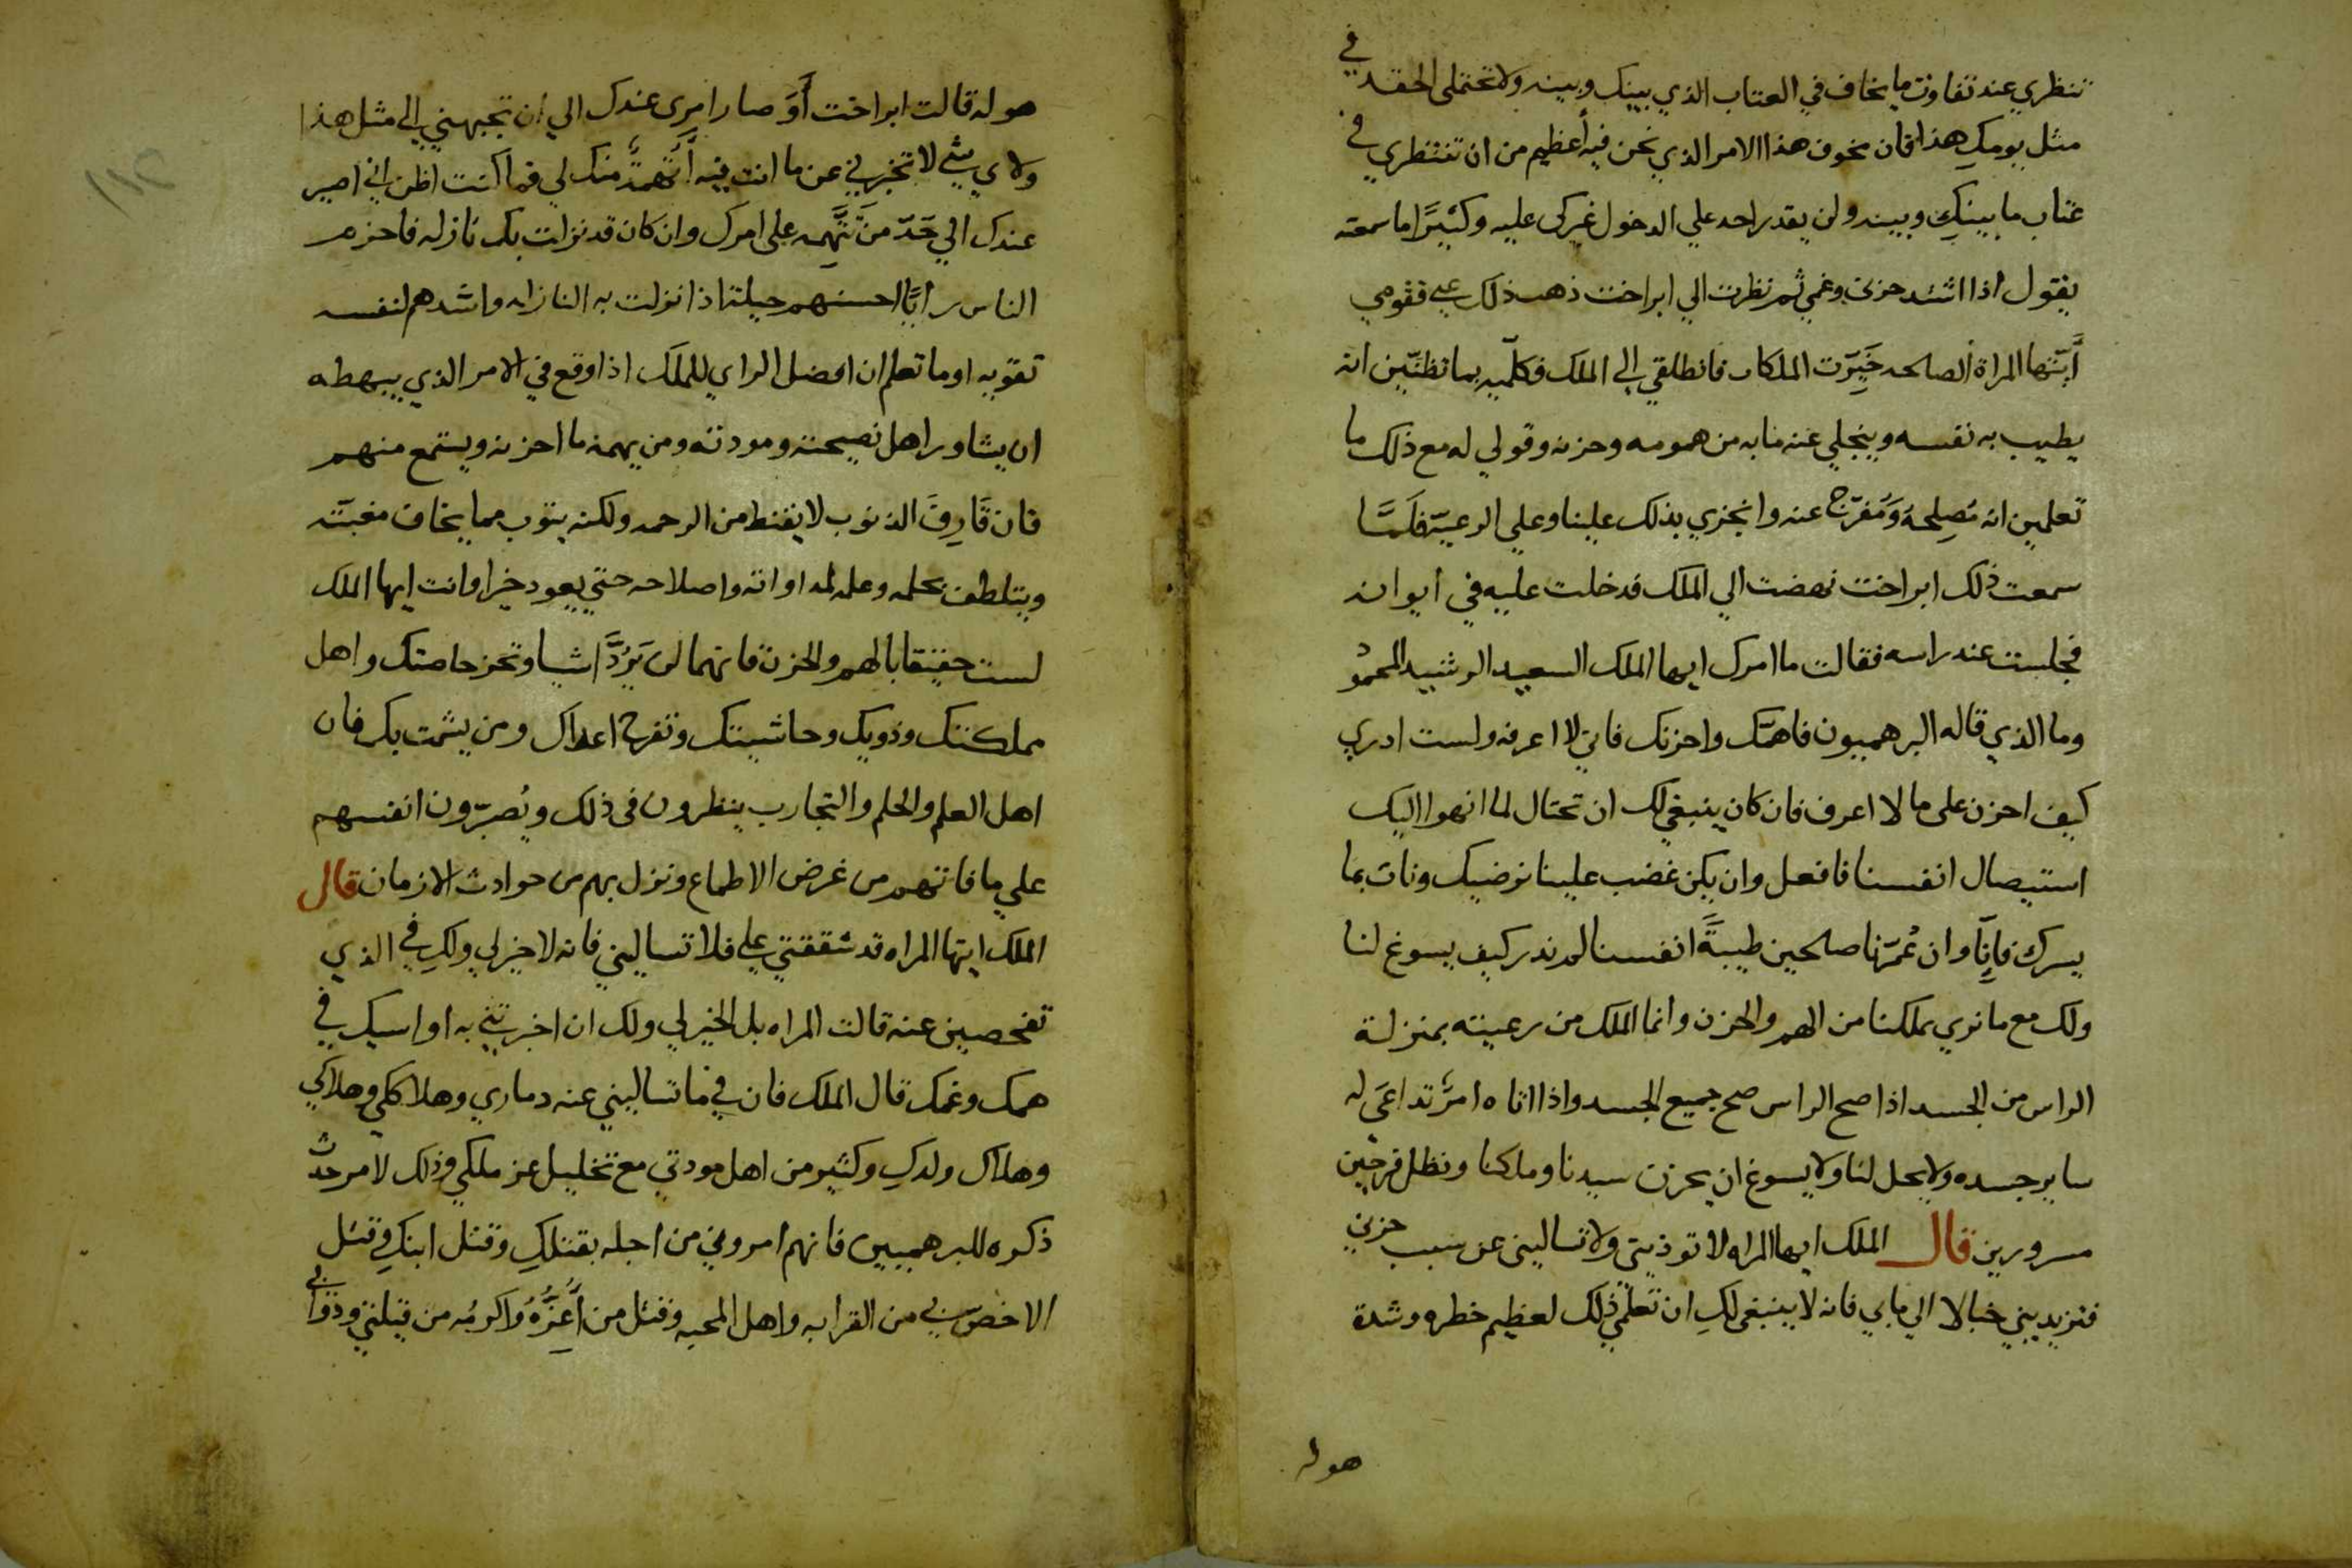 تنظري عند تفاوت ما يخاف في العتاب الذي بينك وبينه ولا تحتملى الحقد في
مثل يومكِ هذا فان مخوف هذا الامر الذي نحن فيه أعظيم من ان تنتظري في
عتاب ما بينكِ وبينه ولن يقدر احد علي الدخول غيركى عليه وكثيرًا ما سمعته
يقول اذا اشتد حزني وغمي ثم نظرت الي ابراخت ذهب ذلك عني فقومي
أيّتها المراة الصالحه خَيِرّت الملكات فانطلقي الى الملك فكلّميه بما تظنّين انه
يطيب به نفسه وينجلي عنه ما به من همومه وحزنه وقولي له مع ذلك ما
تعلمين انه مُصِلحهُ وَمُفرّج عنه وانجزي بذلك علينا وعلي الرعيّة فلَمَّا
سمعت ذلك ابراخت نهضت الي الملك فدخلت عليه في ايوانه
فجلست عند راسه فقالت ما امرك ايها الملك السعيد الرشيد المحمود
وما الذي قاله البرهميون فاهمّك واحزنك فاني لا اعرفه ولست ادري
كيف احزن على ما لا اعرف فان كان ينبغي لك ان تحتال لما انهوا اليك
استيصال انفسنا فافعل وان يكن غضب علينا نرضيك ونات بما
يسرك فاِنّا وان عُمرّنا صلحين طيبةً انفسنا لم ندر كيف يسوغ لنا
ولك مع ما نري بملكنا من الهم والحزن وانما الملك من رعيته بمنزلة
الراس من الجسد اذا صح الراس صح جميع الجسد واذا اتاه امرٌ تداعَي له
ساير جسده ولا يحل لنا ولا يسوغ ان يحزن سيدنا وملكنا ونظل فرحين
مسرورين قال الملك ايها المراه لا توذيني ولا تساليني عن سبب حزني
فتزيديني خبالا الي ما بي فانه لا ينبغى لكِ ان تعلمي ذلك لعظيم خطره وشدة
هوله
هوله قالت ابراخت أَوَ صار امرى عندك الي ان تجبهني الى مثل هذا
ولاي شي لا تخبرني عن ما انت فيه أَتُهمةً منك لي فما كنت اظن اني اصير
عندك الي حَدّ مَنْ تتَّهِمه على امرك وان كان قد نزلت بك نازله فاحزم
الناس رايًا احسنهم حيلتا اذا نزلت به النازله واشدهم لنفسه
تقوّيه اوما تعلم ان افضل الراي للملك اذا وقع في الامر الذي يبهظه
ان يشاور اهل نصيحته ومودته ومن يهمه ما احزنه ويستمع منهم
فان قَارِفَ الذنوب لا يقنط من الرحمه ولكنه يتوب مما يخاف مغبّته
ويتلطف بحلمه وعلمه لمداواته واصلاحه حتي يعود خيرا وانت ايها الملك
لست حقيقا بالهم والحزن فانهما لن يَرُدَّا شيا وتحزن خاصتك واهل
مملكتك وذويك وحاشيتك وتفرح اعداك ومن يشمت بك فان
اهل العلم والحلم والتجارب ينظرون فى ذلك ويُصبّرون انفسهم
علي ما فاتهم من غرض الاطماع ونزل بهم من حوادث الازمان قال
الملك ايتها المراه قد شققتي علي فلا تساليني فانه لا خير لي ولكِ في الذي
تفحصين عنه قالت المراه بل الخير لي ولك ان اخبرتني به اواسيك في
همك وغمك قال الملك فان في ما تساليني عنه دماري وهلاككي وهلاكي
وهلاك ولدكِ وكثير من اهل مودتي مع تخليل عز ملكي وذلك لامر حدث
ذكره للبرهميين فانهم امروني من اجله بقتلكِ وقتل ابنكِ وقتل
الاخصّ بي من القرابه واهل المحبه وقتل من أَعِزُّهُ واكرمُه من قبلتي وذوابي